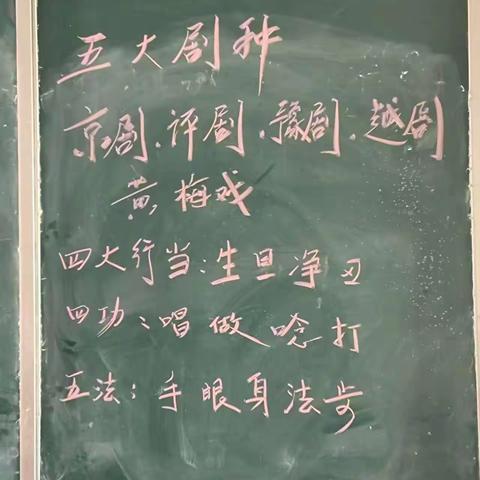 五大剧种
京剧、评剧、豫剧、越剧
黄梅戏
四大行当:生旦净丑
四功:唱做唸打
五法:手眼身法步